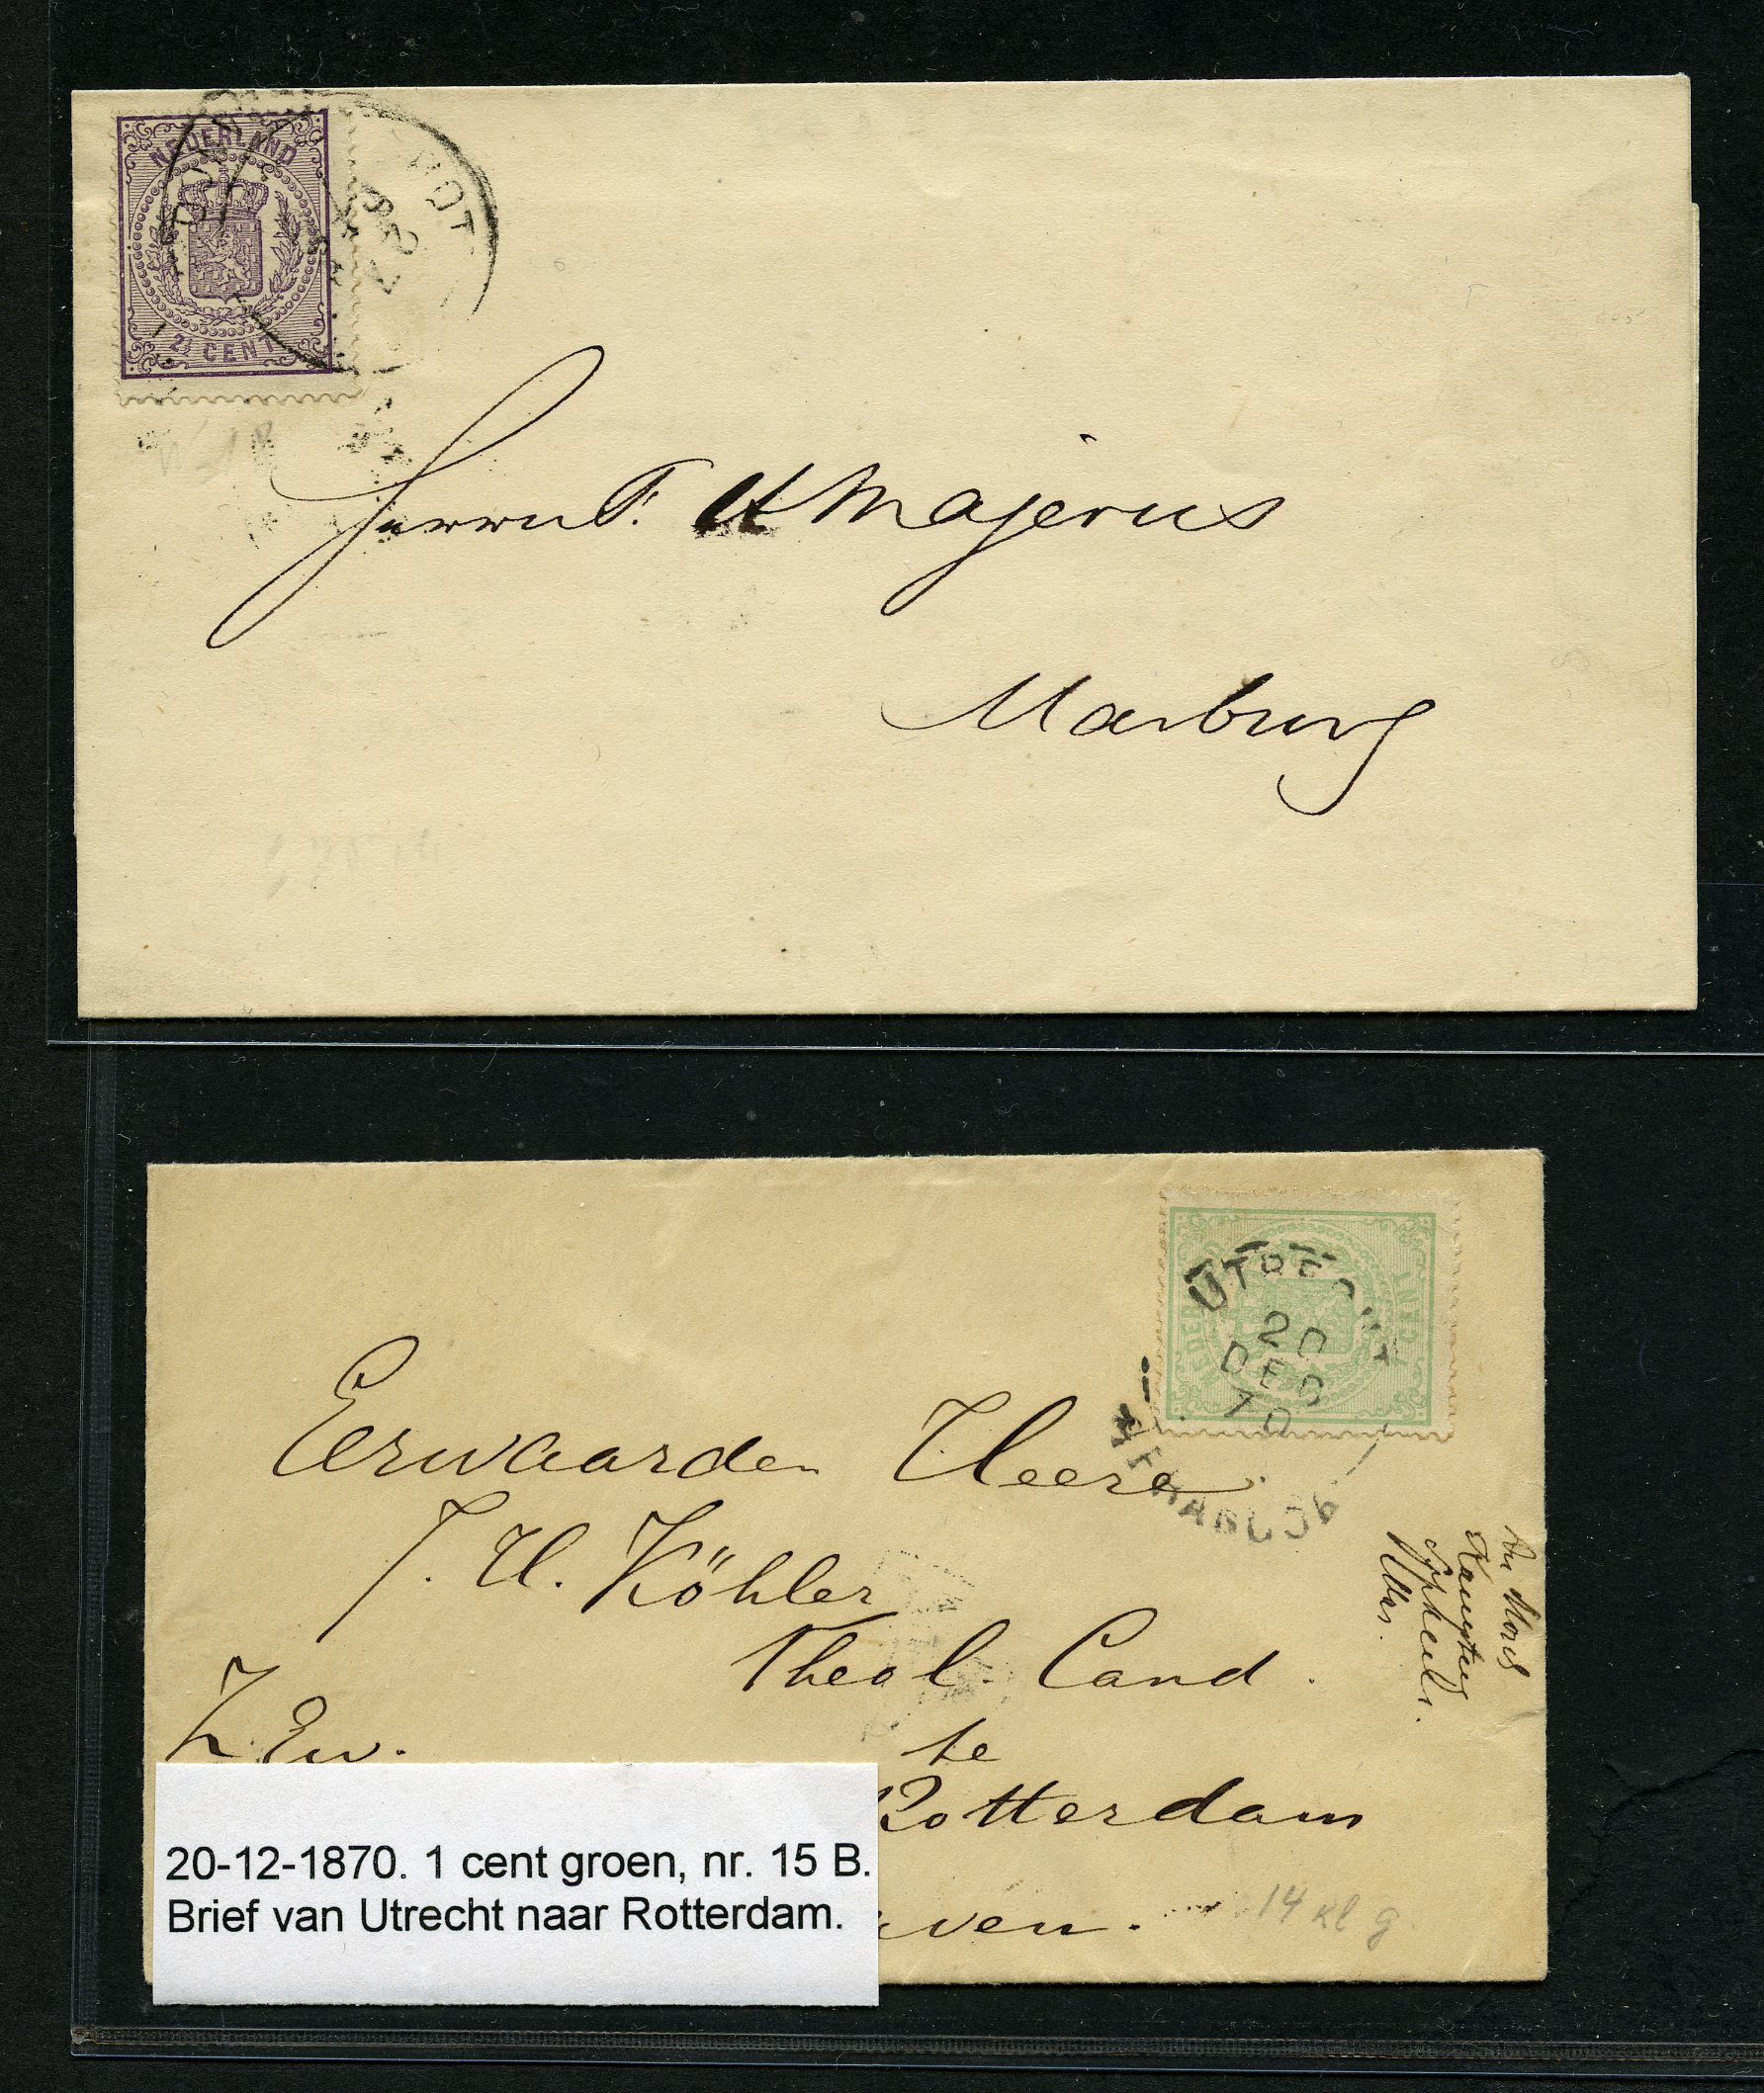 NEDERLAND
2½ CENT
Herrn F. A Majerus
Marburg
1 CENT
UTRECHT
20
DEC
70
Eerwaarden Heere
J. H. Köhler
Theol. Cand.
te
Z. Ew.
Rotterdam
14 kl g
20-12-1870. 1 cent groen, nr. 15 B.
Brief van Utrecht naar Rotterdam.